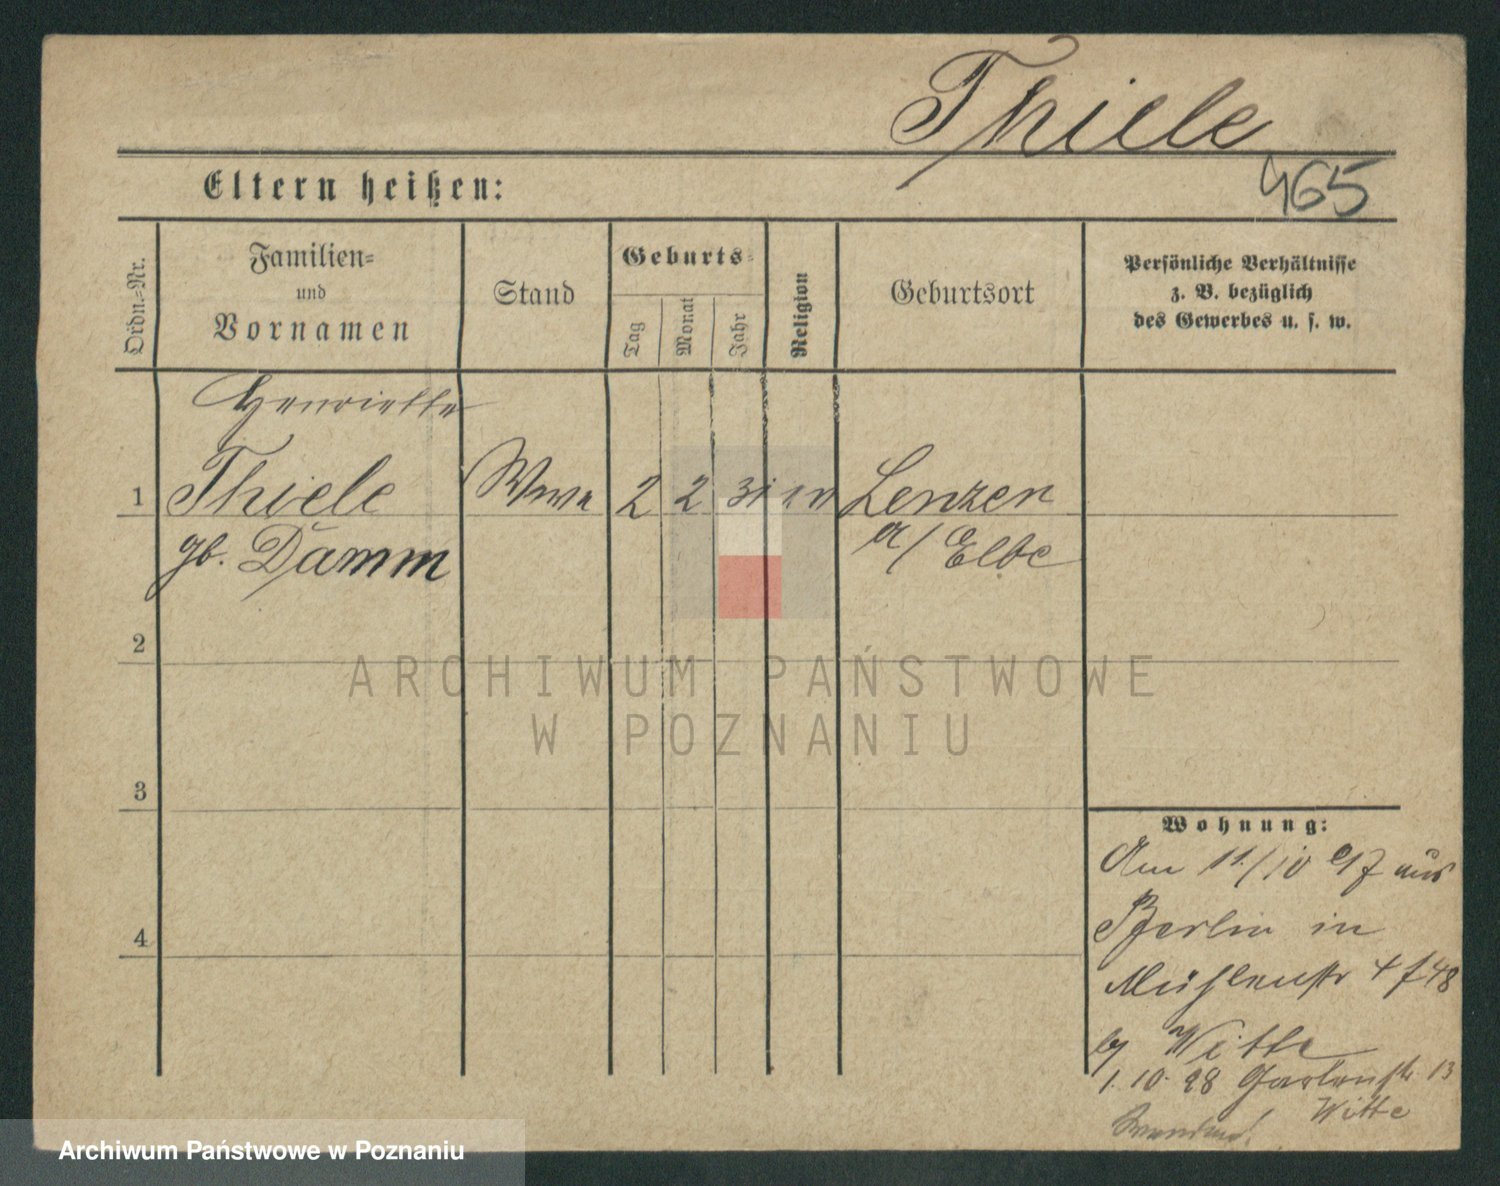 Thiele
965
Eltern heißen:
Ordn.-Nr.
Familien-
und
Vornamen
Stand
Geburts-
Tag
Monat
Jahr
Religion
Geburtsort
Persönliche Verhältnisse
z. B. bezüglich
des Gewerbes u. s. w.
Henriette
1 Thiele Wwe 2 2 31 ev Lenzen
gb. Damm a/ Elbe
2
ARCHIWUM PAŃSTWOWE
W POZNANIU
3
4
Wohnung:
Am 11/10 97 aus
Berlin in
Mühlenstr
by Witte
1. 10. 98 Gartenstr. 13
Witte
Archiwum Państwowe w Poznaniu